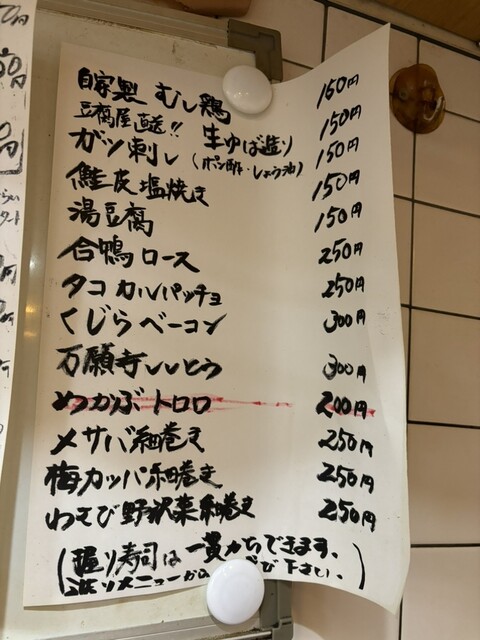 自家製 むし鶏 150円
豆腐屋直送!! 生ゆば造り 150円
ガツ刺し (ポン酢・しょう油) 150円
鮭皮塩焼き 150円
湯豆腐 150円
合鴨ロース 250円
タコカルパッチョ 250円
くじらベーコン 300円
万願寺ししとう 300円
めかぶトロロ 200円
〆サバ細巻き 250円
梅カッパ細巻き 250円
わさび野沢菜細巻き 250円
(握り寿司は一貫からできます。
メニューから 下さい。)